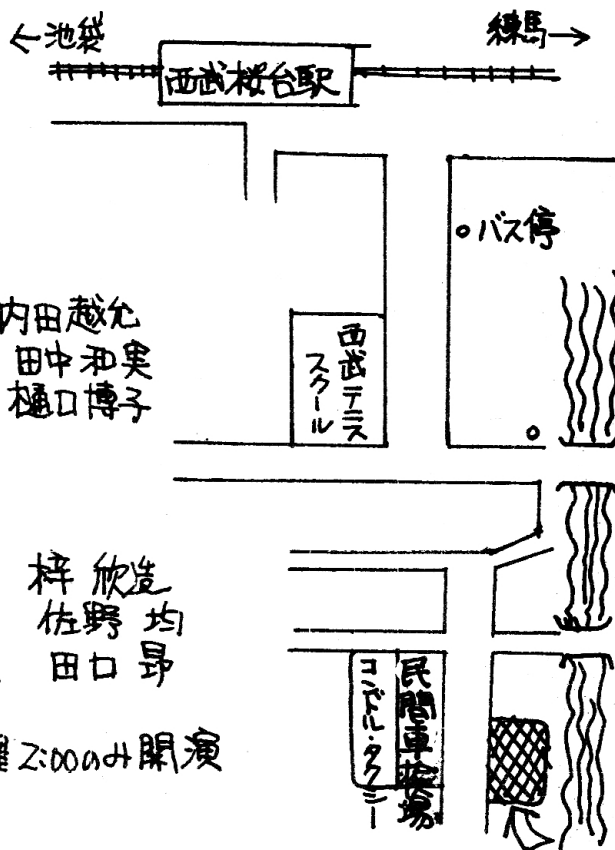 ←池袋
練馬→
西武桜台駅
バス停
内田越允
田中和実
樋口博子
西武テニス
スクール
梓 欣造
佐野 均
田口 昴
2:00のみ開演
民間車検場
コンドル・タクシー